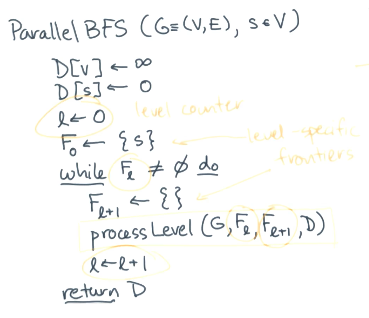 Parallel BFS (G=(V,E), s∈V)
D[v] ← ∞
D[s] ← 0
l ← 0 level counter
F₀ ← {s} level-specific
frontiers
while Fₗ ≠ ∅ do
Fₗ₊₁ ← {}
processLevel (G, Fₗ, Fₗ₊₁, D)
l ← l+1
return D